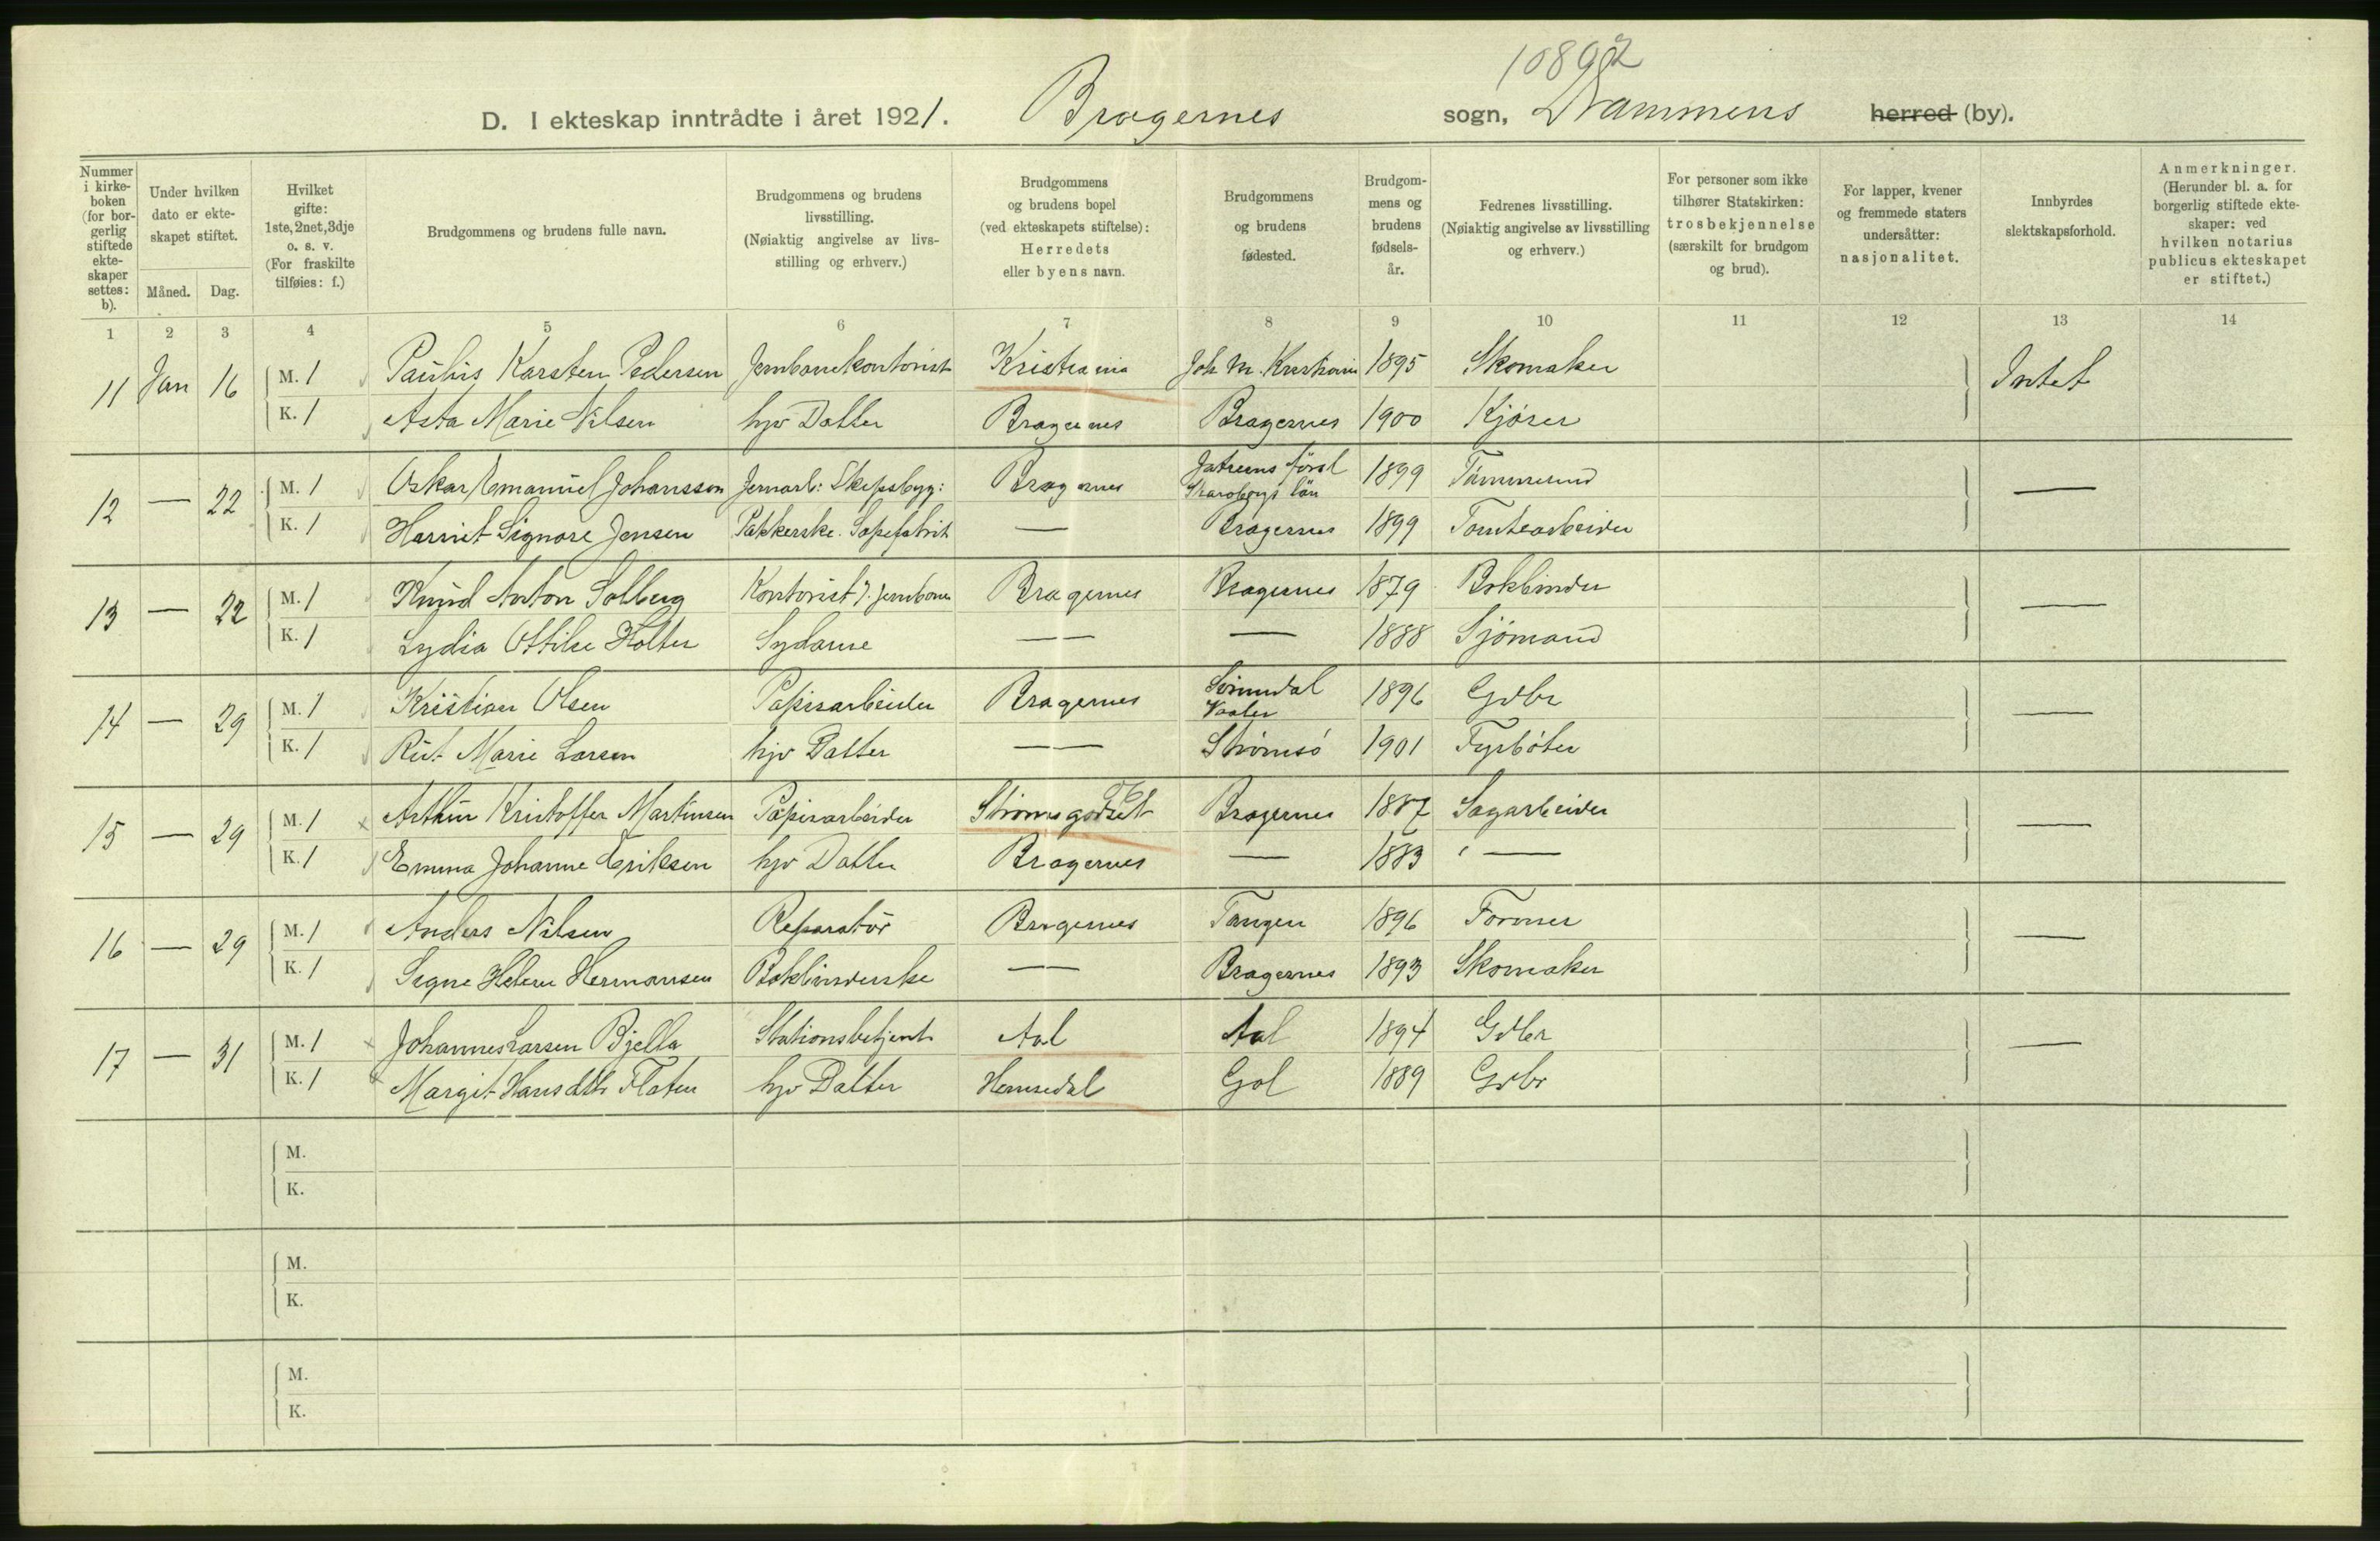 10892
D. I ekteskap inntrådte i året 1921. Bragernes sogn, Drammens herred (by).
Nummer i kirke-boken (for bor-gerlig stiftede ekte-skaper settes: b).
Under hvilken dato er ekte-skapet stiftet.
Måned. Dag.
Hvilket gifte: 1ste, 2net, 3dje o. s. v. (For fraskilte tilføies: f.)
Brudgommens og brudens fulle navn.
Brudgommens og brudens livsstilling. (Nøiaktig angivelse av livs-stilling og erhverv.)
Brudgommens og brudens bopel (ved ekteskapets stiftelse): Herredets eller byens navn.
Brudgommens og brudens fødested.
Brudgom-mens og brudens fødsels-år.
Fedrenes livsstilling. (Nøiaktig angivelse av livsstilling og erhverv.)
For personer som ikke tilhører Statskirken: trosbekjennelse (særskilt for brudgom og brud).
For lapper, kvener og fremmede staters undersåtter: nasjonalitet.
Innbyrdes slektskapsforhold.
Anmerkninger. (Herunder bl. a. for borgerlig stiftede ekte-skaper: ved hvilken notarius publicus ekteskapet er stiftet.)
1 2 3 4 5 6 7 8 9 10 11 12 13 14
11 Jan 16 M. 1 Paulus Karsten Pedersen Jernbanekontorist Kristiania Joh M. Kristiania 1895 Skomaker Intet
K. 1 Asta Marie Nilsen hjv Datter Bragernes Bragernes 1900 Kjører
12 — 22 M. 1 Oskar Emanuel Johansson Jernarb: Skipsbyg: Bragernes Skaraborgs län 1899 Tømmermd —
K. 1 Harriet Signore Jensen Pakkerske. Såpefabrik — Bragernes 1899 Tomtearbeider
13 — 22 M. 1 Knud Anton Solberg Kontorist v. jernbane Bragernes Bragernes 1879 Bokbinder —
K. 1 Lydia Ottilie Holter Sydame — — — 1888 Sjømand
14 — 29 M. 1 Kristian Olsen Papirarbeider Bragernes Svinndal Vaaler 1896 Gdbr —
K. 1 Rut Marie Larsen hjv Datter — — Strømsø 1901 Fyrbøter
15 — 29 M. 1 Arthur Kristoffer Martinsen Papirarbeider Strømsgodset Bragernes 1887 Sagarbeider —
K. 1 Emma Johanne Eriksen hjv Datter Bragernes — 1883 —
16 — 29 M. 1 Anders Nilsen Reparatør Bragernes Tangen 1896 Former —
K. 1 Signe Helene Hermansen Bokbinderske — — Bragernes 1893 Skomaker
17 — 31 M. 1 Johannes Larsen Bjella Stationsbetjent Aal Aal 1894 Gdbr —
K. 1 Margit Hansdtr Flaten hjv Datter Hemsedal Gol 1889 Gdbr
M.
K.
M.
K.
M.
K.